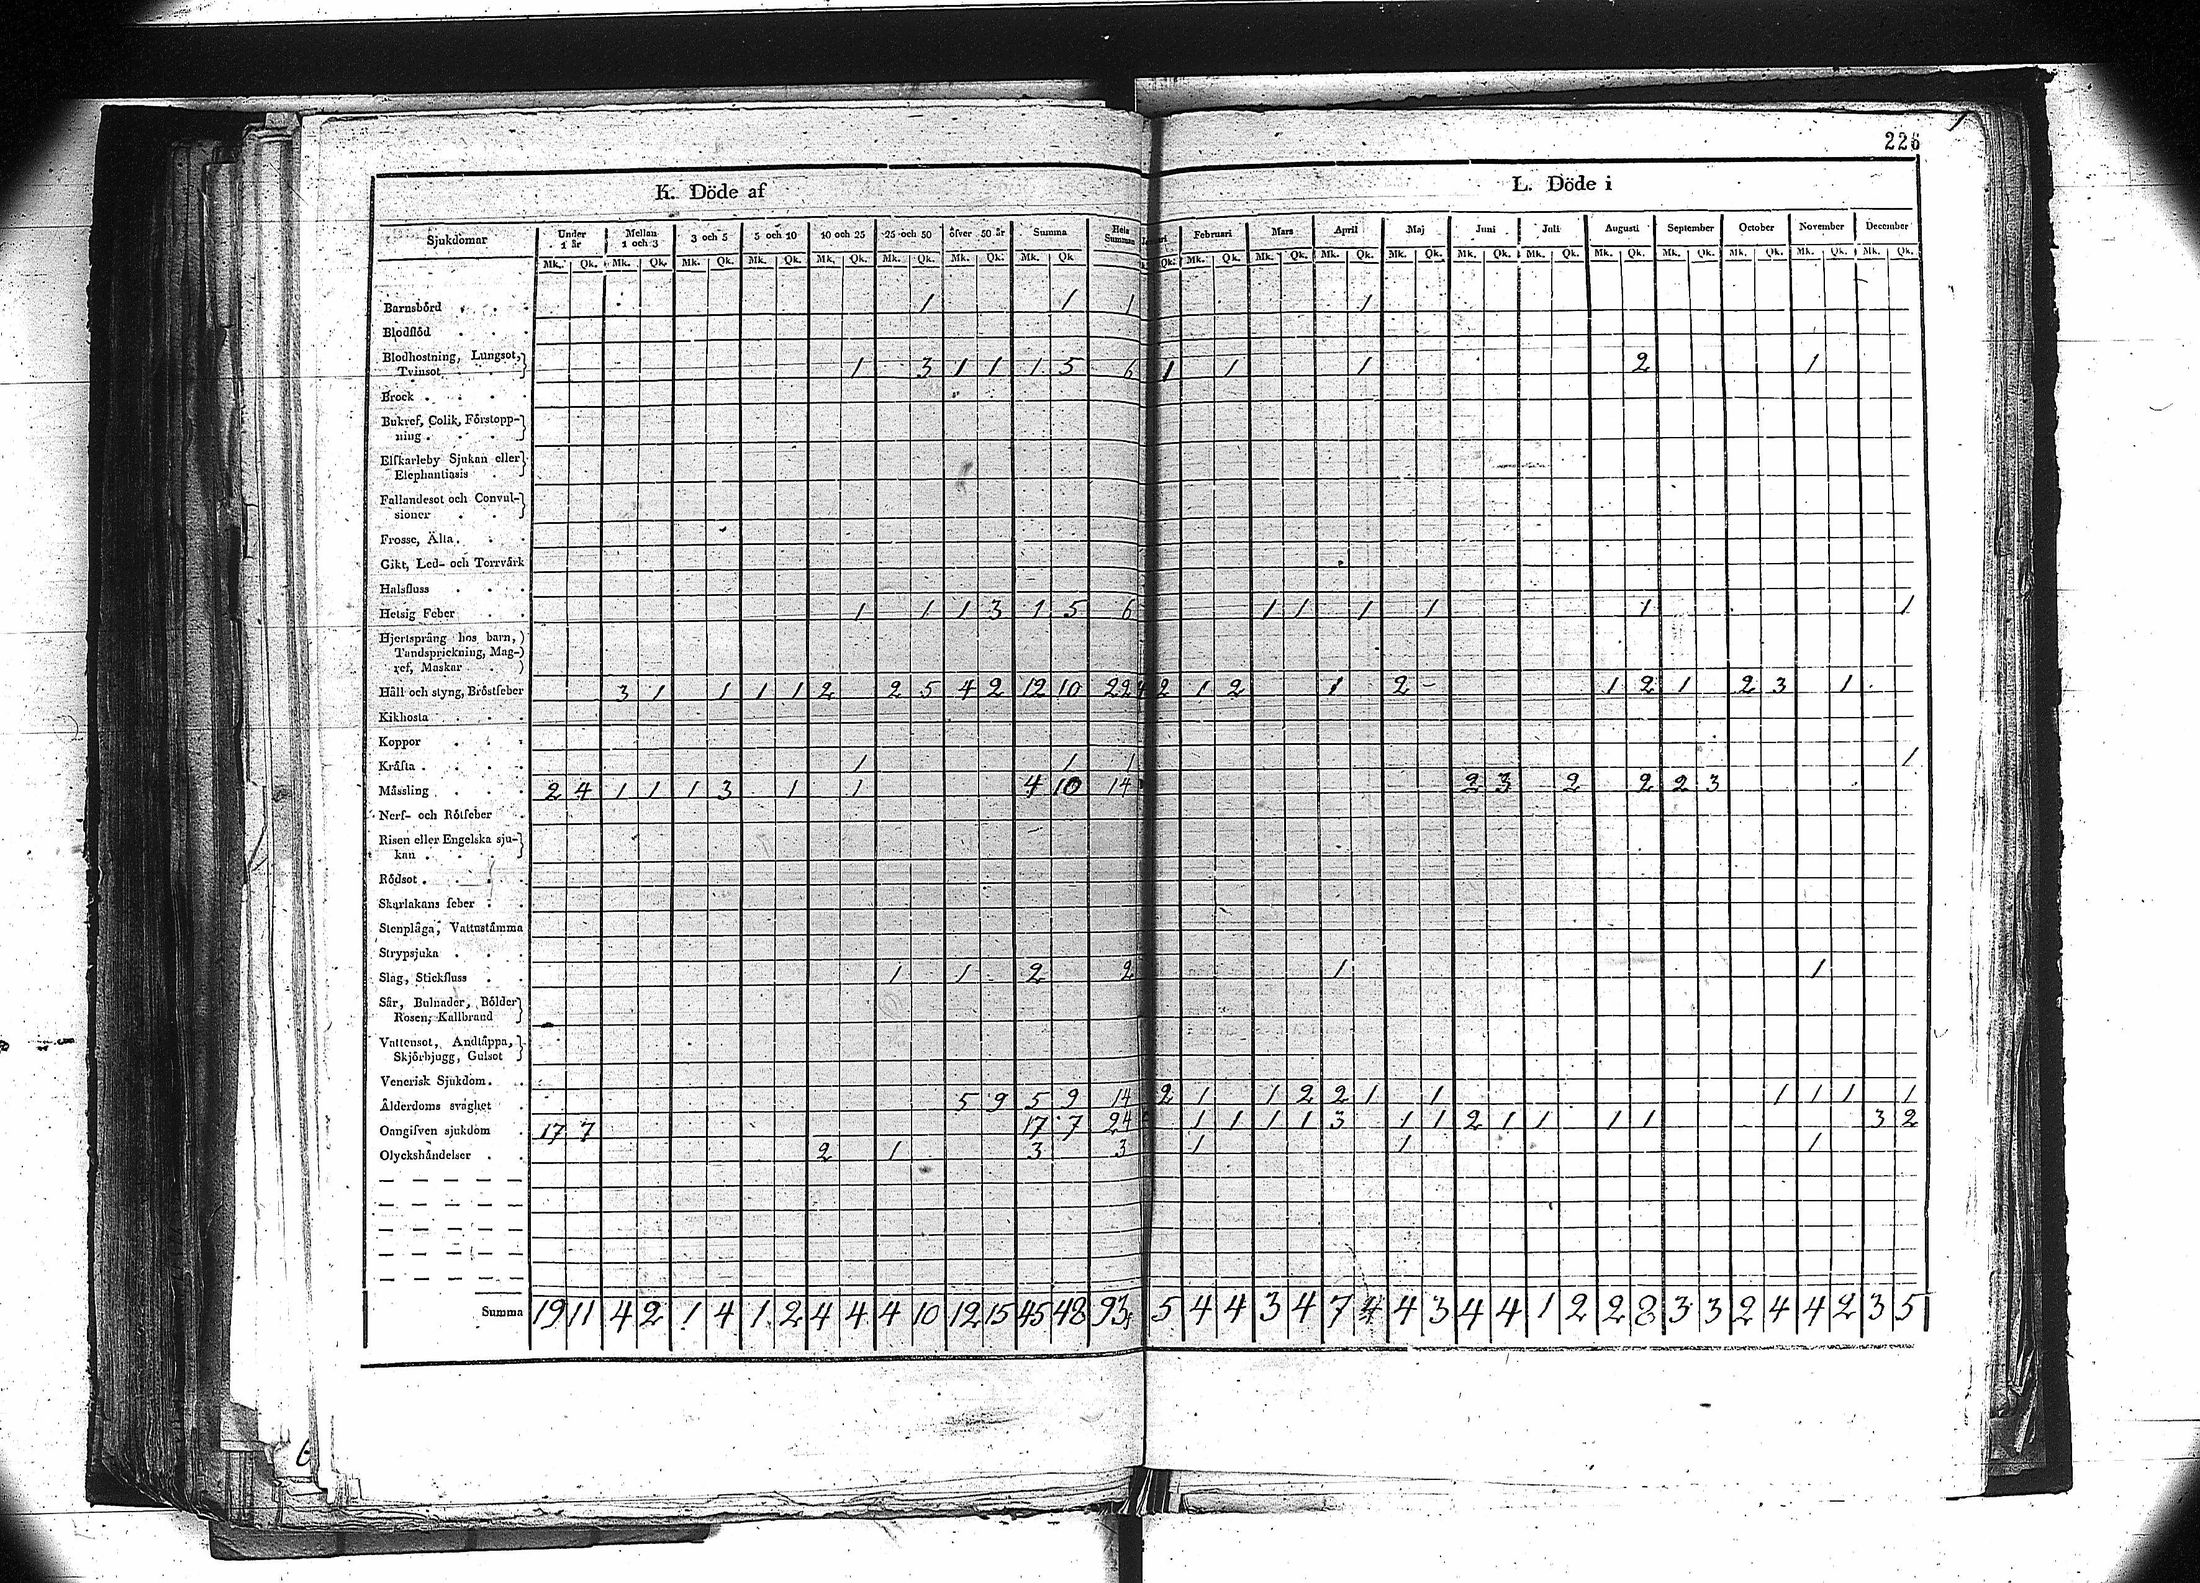 226
K. Döde af
L. Döde i
Sjukdomar Under 1 år Mellan 1 och 3 3 och 5 5 och 10 10 och 25 25 och 50 öfver 50 år Summa Hela Summan
Februari Mars April Maj Juni Juli Augusti September October November December
Mk. Qk. Mk. Qk. Mk. Qk. Mk. Qk. Mk. Qk. Mk. Qk. Mk. Qk. Mk. Qk
Qk. Mk. Qk. Mk. Qk. Mk. Qk. Mk. Qk. Mk. Qk. Mk. Qk. Mk. Qk. Mk. Qk. Mk. Qk. Mk. Qk. Mk. Qk.
Barnsbörd 1 1 1 1
Blodflöd
Blodhostning, Lungsot,
Tvinsot 1 3 1 1 1 5 6 1 1 1 2 1
Brock
Bukref, Colik, Förstopp-
ning
Elfkarleby Sjukan eller
Elephantiasis
Fallandesot och Convul-
sioner
Frossa, Älta
Gikt, Led- och Torrvärk
Halsfluss
Hetsig Feber 1 1 1 3 1 5 6 1 1 1 1 1 1
Hjertsprång hos barn,
Tandsprickning, Mag-
ref, Maskar
Håll och styng, Bröstfeber 3 1 1 1 1 2 2 5 4 2 12 10 22 4 2 1 2 1 2 1 2 1 2 3 1
Kikhosta
Koppor
Kräfta 1 1 1 1
Mässling 2 4 1 1 1 3 1 1 4 10 14 2 3 2 2 2 3
Nerf- och Rötfeber
Risen eller Engelska sju-
kan
Rödsot
Skarlakans feber
Stenplåga, Vattustämma
Strypsjuka
Slag, Stickfluss 1 1 2 2 1 1
Sår, Bulnader, Bölder
Rosen, Kallbrand
Vattensot, Andtäppa,
Skjörbjugg, Gulsot
Venerisk Sjukdom
Ålderdoms svaghet 5 9 5 9 14 2 1 1 2 2 1 1 1 1 1 1
Oangifven sjukdom 17 7 17 7 24 1 1 1 1 3 1 1 2 1 1 1 1 3 2
Olyckshändelser 2 1 3 3 1 1 1
Summa 19 11 4 2 1 4 1 2 4 4 4 10 12 15 45 48 93 5 4 4 3 4 7 4 4 3 4 4 1 2 2 8 3 3 2 4 4 2 3 5